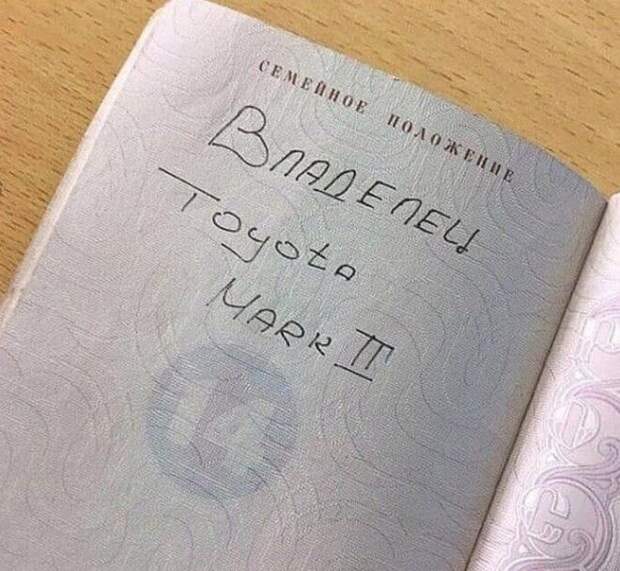 СЕМЕЙНОЕ ПОЛОЖЕНИЕ
ВЛАДЕЛЕЦ
Toyota
MARK II
14